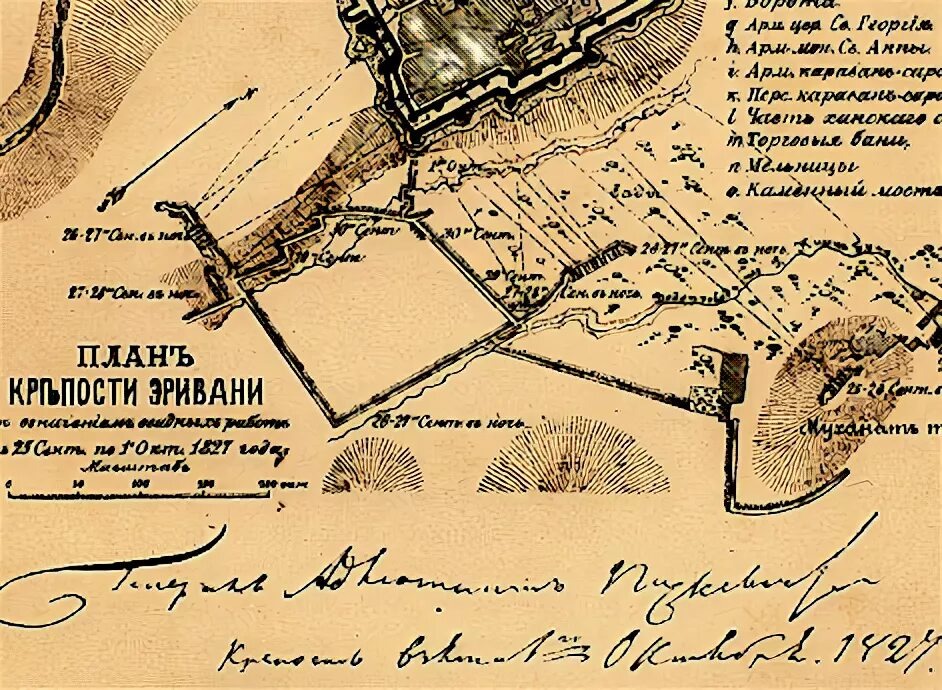 f. Ворота
g Арм. цер. Св. Георгія
h Арм. мон. Св. Анны.
i. Арм. караванъ-сара
к. Перс. караванъ-сара
l Часть ханскаго с
m Торговыя бани,
n Мельницы
o. Каменный мостъ
N
1го Окт.
Сады
26-27го Сен. въ ночь
30го Сент.
30го Сент.
26-27го Сент. въ ночь
27-28го Сен. въ ночь
Сен. въ ночь
ПЛАНЪ
КРѢПОСТИ ЭРИВАНИ
съ означеніемъ осадныхъ работъ
25 Сент. по 1е Окт. 1827 года.
Масштабъ
0 50 100 200 саж.
Муханатъ т
Генералъ Адъютантъ Паскевичъ
Крѣпость взята 1го Октября. 1827